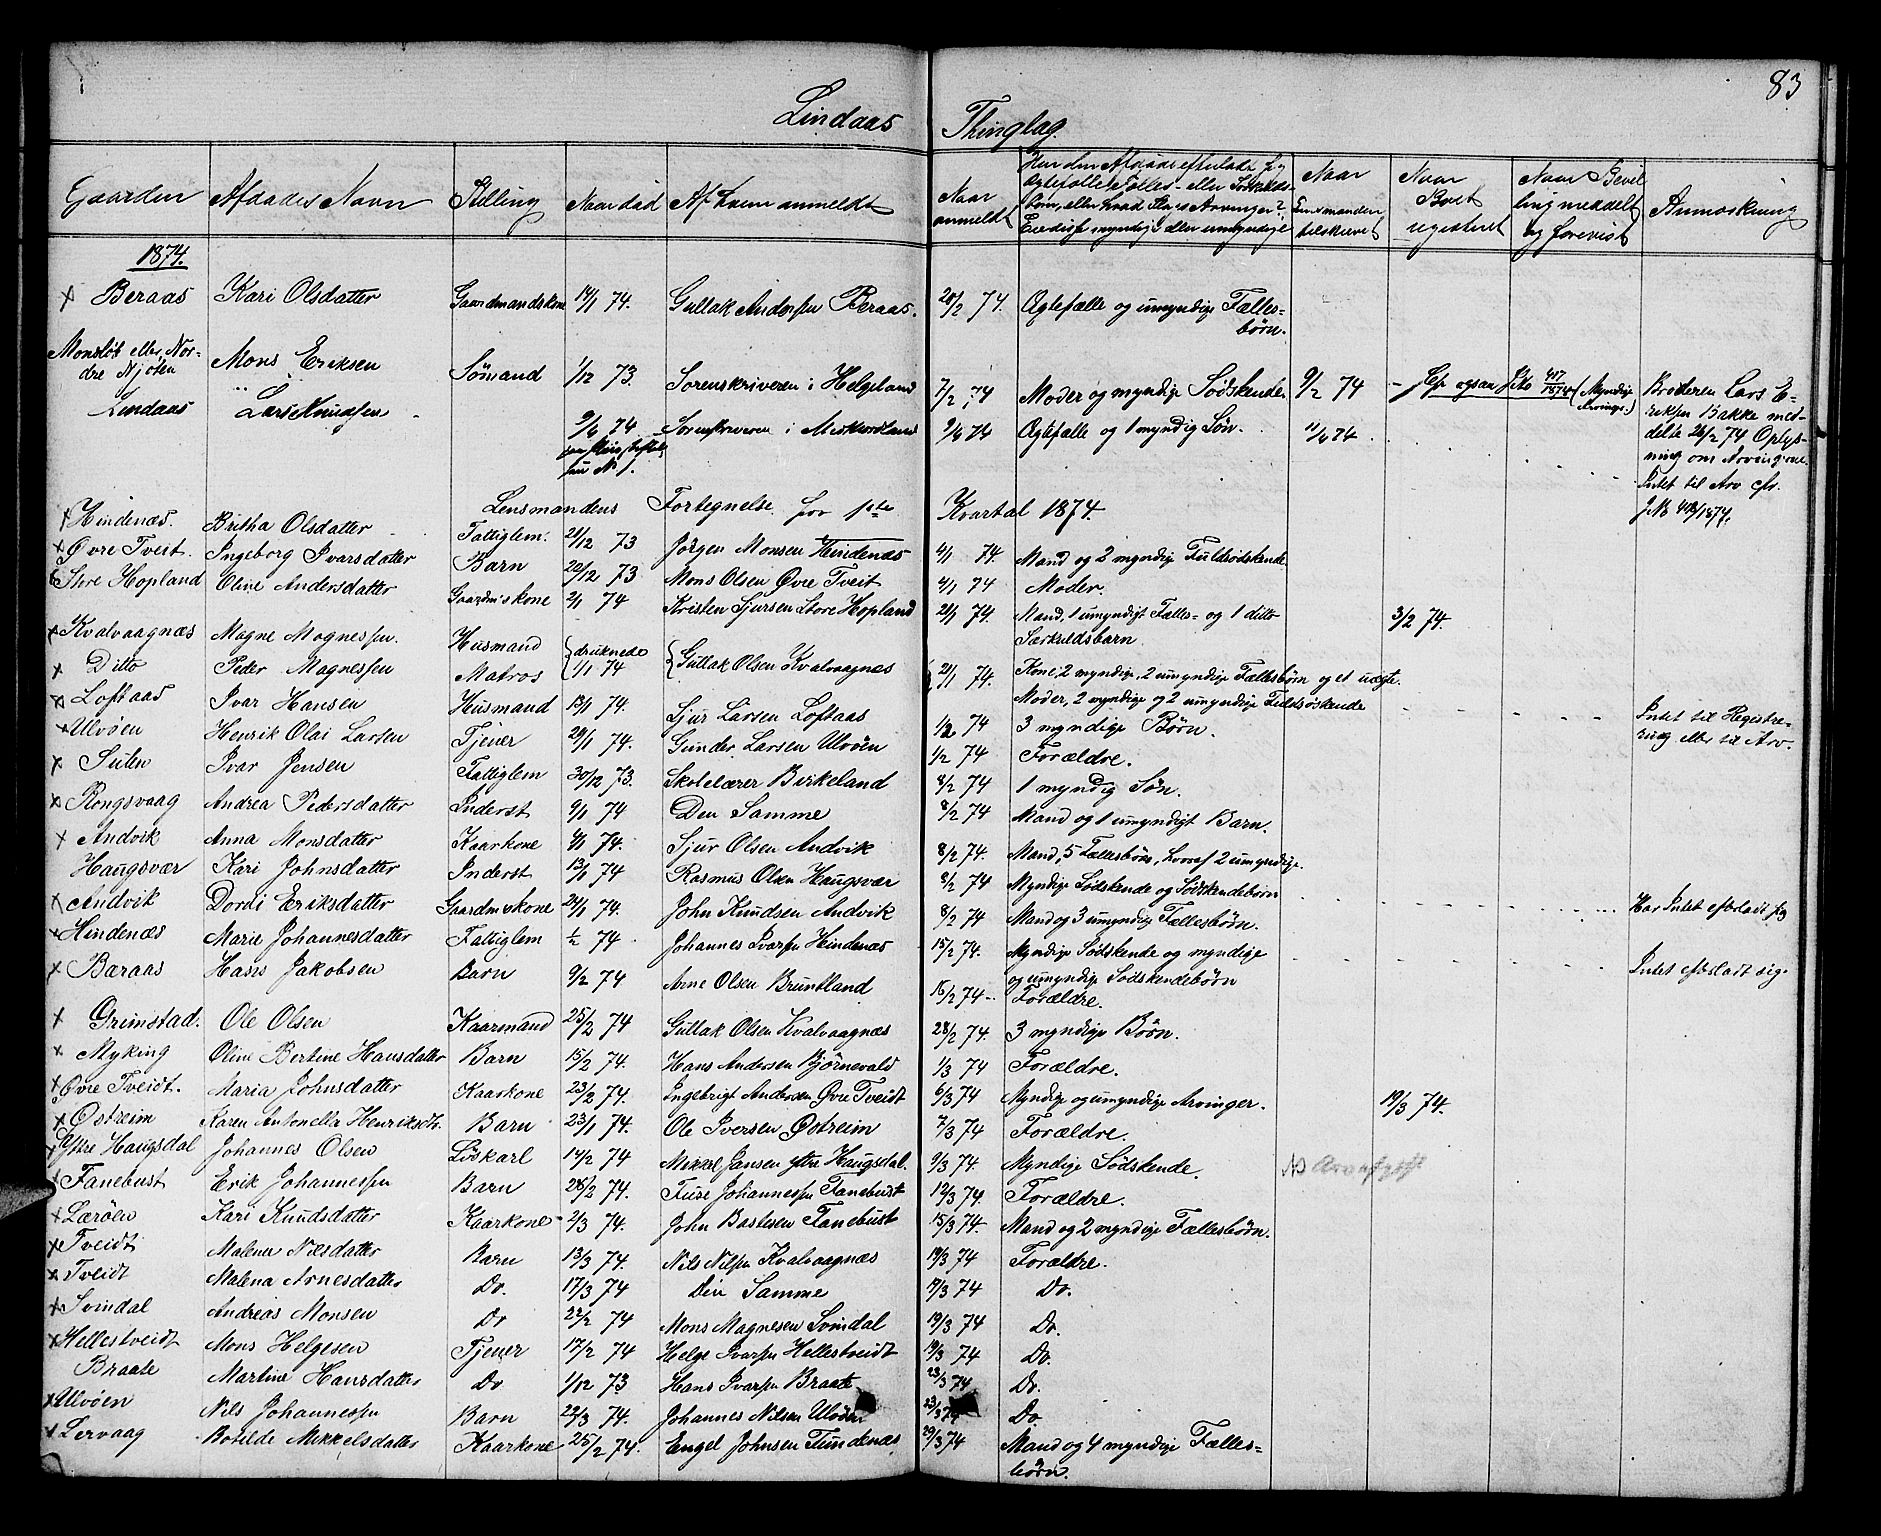 83
Lindaas Thinglag.
Gaarden Afdødes Navn Stilling Naar död Af hvem anmeldt Naar anmeldt Har den Afdøde efterladt sig Ægtefælle, Fælles- eller Særkulds- börn, eller hvad Slags Arvinger? Ere disse myndige eller umyndige Naar Lensmanden tilskrevet Naar Boet registreret Naar Bevilling meddelt og forevist Anmærkning
1874.
x Beraas Kari Olsdatter Gaardmandskone 14/1 74. Gullak Andersen Beraas. 20/2 74. Ægtefælle og umyndige Fælles- börn.
Monsløt eller Nordre Njøten Mons Eriksen Sømand 1/12 73. Sorenskriveren i Helgeland 7/2 74 Moder og myndige Sødskende. 9/2 74 (Myndige Arvinge.) Broderen Lars Eriksen Bakke meddelte 26/2 74 Oplysning om Arvingerne.
Lindaas Lars Knudsen 9/6 74 Sorenskriveren i Midthordland 9/6 74 Ægtefælle og 1 myndig Søn. 11/6 74. Intet til Arv cfr.
Lensmandens Fortegnelse for 1ste Kvartal 1874.
x Hindenæs. Britha Olsdatter Fattiglem. 21/12 73 Jørgen Monsen Hindenæs 4/1 74. Mand og 2 myndige Fuldsødskende
x Øvre Tveit. Ingeborg Ivarsdatter Barn 22/12 73 Mons Olsen Øvre Tveit 4/1 74 Moder.
x Store Hopland Oline Andersdatter Gaardmskone 2/1 74 Kristen Sjursen Store Hopland 21/1 74. Mand, 1 umyndigt Fælles- og 1 ditto Særkuldsbarn 3/2 74.
x Kvalvaagnæs Magne Magnessen. Husmand druknede 1/1 74 Gullak Olsen Kvalvaagnæs 21/1 74. Kone, 2 myndige, 2 umyndige Fællesbørn og et uægte.
x Ditto Peder Magnessen Matros Moder, 2 myndige og 2 umyndige Fuldsøskende
x Loftaas Ivar Hansen Husmand 13/1 74. Sjur Larsen Loftaas 1/2 74 3 myndige Børn. Intet til Registrering eller til Arv.
x Ulvøen Henrik Olai Larsen Tjener 29/1 74. Gunder Larsen Ulvøen 1/2 74 Forældre.
x Sulen Ivar Jensen Fattiglem 30/12 73. Skolelærer Birkeland 8/2 74 1 myndig Søn.
x Rongsvaag Andrea Pedersdatter Inderst 9/1 74 Den Samme 8/2 74 Mand og 1 umyndigt Barn.
x Andvik Anna Monsdatter Kaarkone 4/1 74. Sjur Olsen Andvik 8/2 74. Mand, 5 Fællesbörn, hvoraf 2 umyndige.
Haugsvær Kari Johnsdatter Inderst 13/1 74 Rasmus Olsen Haugsvær 8/2 74 Myndige Sødskende og Sødskendebørn Har Intet efterladt sig
x Andvik Dordi Eriksdatter Gaardmskone 24/1 74. John Knudsen Andvik 8/2 74 Mand og 3 umyndige Fællesbørn.
x Hindenæs Marie Johannesdatter Fattiglem 1/2 74. Johannes Ivarsen Hindenæs 15/2 74. Myndige Sødskende og myndige og umyndige Sødskendebörn Intet efterladt sig.
x Bæraas Hans Jakobsen Barn 9/2 74 Arne Olsen Bruntland 16/2 74. Forældre.
x Grimstad. Ole Olsen Kaarmand 25/2 74 Gullak Olsen Kvalvaagnæs 28/2 74. 3 myndige Börn.
x Myking Oline Bertine Hansdatter Barn 15/2 74. Hans Andersen Bjørnevald 1/3 74 Forældre.
x Øvre Tveidt. Maria Johnsdatter Kaarkone 23/2 74. Ingebrigt Andersen Øvre Tveidt 6/3 74 Myndige og umyndige Arvinger. 19/3 74.
x Østreim Karen Antonella Henriksdtr. Barn 23/1 74. Ole Iversen Østreim 7/3 74 Forældre.
x Yttre Haugsdal Johannes Olsen Löskarl 14/2 74 Mikkel Jansen Yttre Haugsdal. 9/3 74. Myndige Sødskende.
x Fanebust Erik Johannessen Barn 28/2 74. Ture Johannessen Fanebust 12/3 74. Forældre.
x Lærøen Kari Knudsdatter Kaarkone 2/3 74. John Bastesen Fanebust 15/3 74. Mand og 2 myndige Fællesbørn.
x Tveidt Malena Nilsdatter Barn 13/3 74. Nils Nilsen Kvalvaagnæs 19/3 74 Forældre.
x Tveidt Malena Arnesdatter Do. 17/3 74 Den Samme 19/3 74 Do.
x Svindal Andreas Monsen Do 22/2 74 Mons Magnesen Svindal 19/3 74 Do.
x Hellestveidt Mons Helgesen Tjener 17/2 74 Helge Ivarsen Hellestveidt 19/3 74 Do.
Braate Martine Hansdatter Do 1/12 73 Hans Ivarsen Braate 23/3 74 Do.
x Ulvøen Nils Johannessen Barn 22/3 74. Johannes Nilsen Ulvøen 23/3 74 Do.
x Lervaag Botilde Mikkelsdatter Kaarkone 25/2 74. Engel Johnsen Tundenæs 29/3 74 Mand og 4 myndige Fælles- börn.